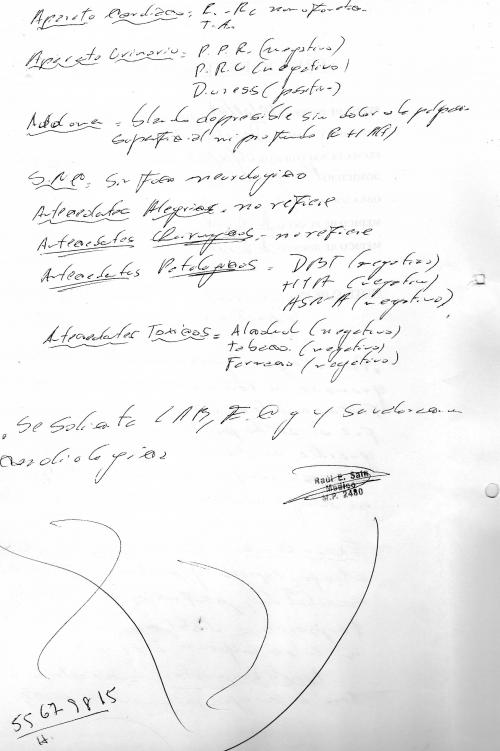 Aparato Cardiaco = R. - Rc normofonetico
T. A.
Aparato Urinario = P. P. R. (negativo)
P. R. U (negativo)
Diuresis (positivo)
Abdomen = blando depresible sin dolor a la palpacion
superficial ni profunda RHA(+)
S.N.C = Sin foco neurologico
Antecedentes Alergicos - no refiere
Antecedentes Quirurgicos - no refiere
Antecedentes Patologicos = DBT (negativo)
HTA (negativo)
ASMA (negativo)
Antecedentes Toxicos = Alcohol (negativo)
tabaco (negativo)
Farmaco (negativo)
. Se Solicita LAB, E.C.G y
cardiologica
Raúl E. Sain
Médico
M.P. 2480
55679815